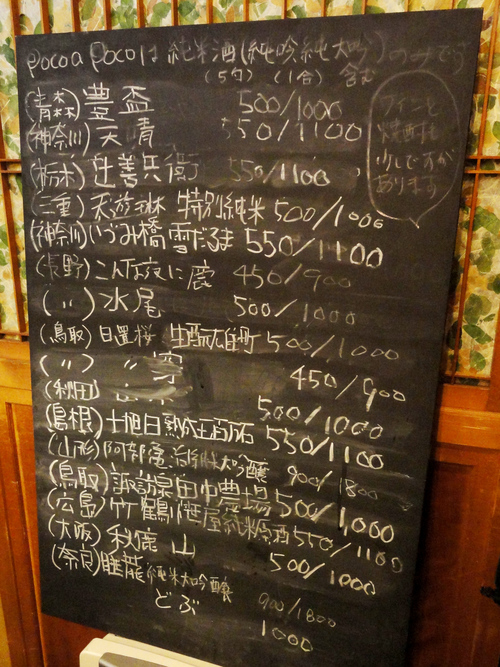 Poco a Pocoは 純米酒(純吟、純大吟)のみです
(5勺) (1合) 含む
(青森) 豊盃 500/1000
(神奈川) 天青 550/1100
(栃木) 辻善兵衛 550/1100
(三重) 天遊琳 特別純米 500/1000
(神奈川) いづみ橋 雪だるま 550/1100
(長野) こんな夜に 鹿 450/900
(〃) 水尾 500/1000
(鳥取) 日置桜 生酛 500/1000
(〃) 〃 450/900
(秋田) 500/1000
(島根) 十旭日 550/1100
(山形) 阿部亀治 純米大吟醸 900/1800
(鳥取) 諏訪泉 田中農場 500/1000
(広島) 竹鶴 純米酒 550/1100
(大阪) 利休 山 500/1000
(奈良) 睡龍 純米大吟醸 900/1800
どぶ 1000
ワインと
焼酎も
少しですが
あります